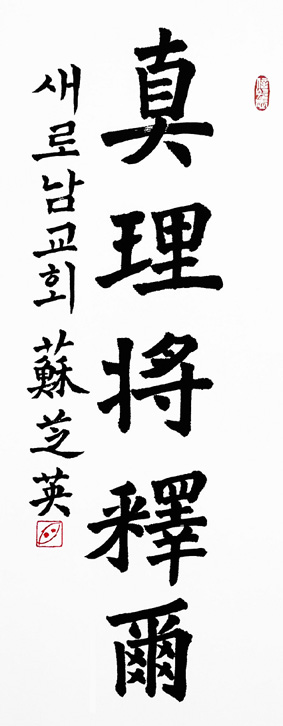 真理将釋爾
새로남교회 蘇芝英